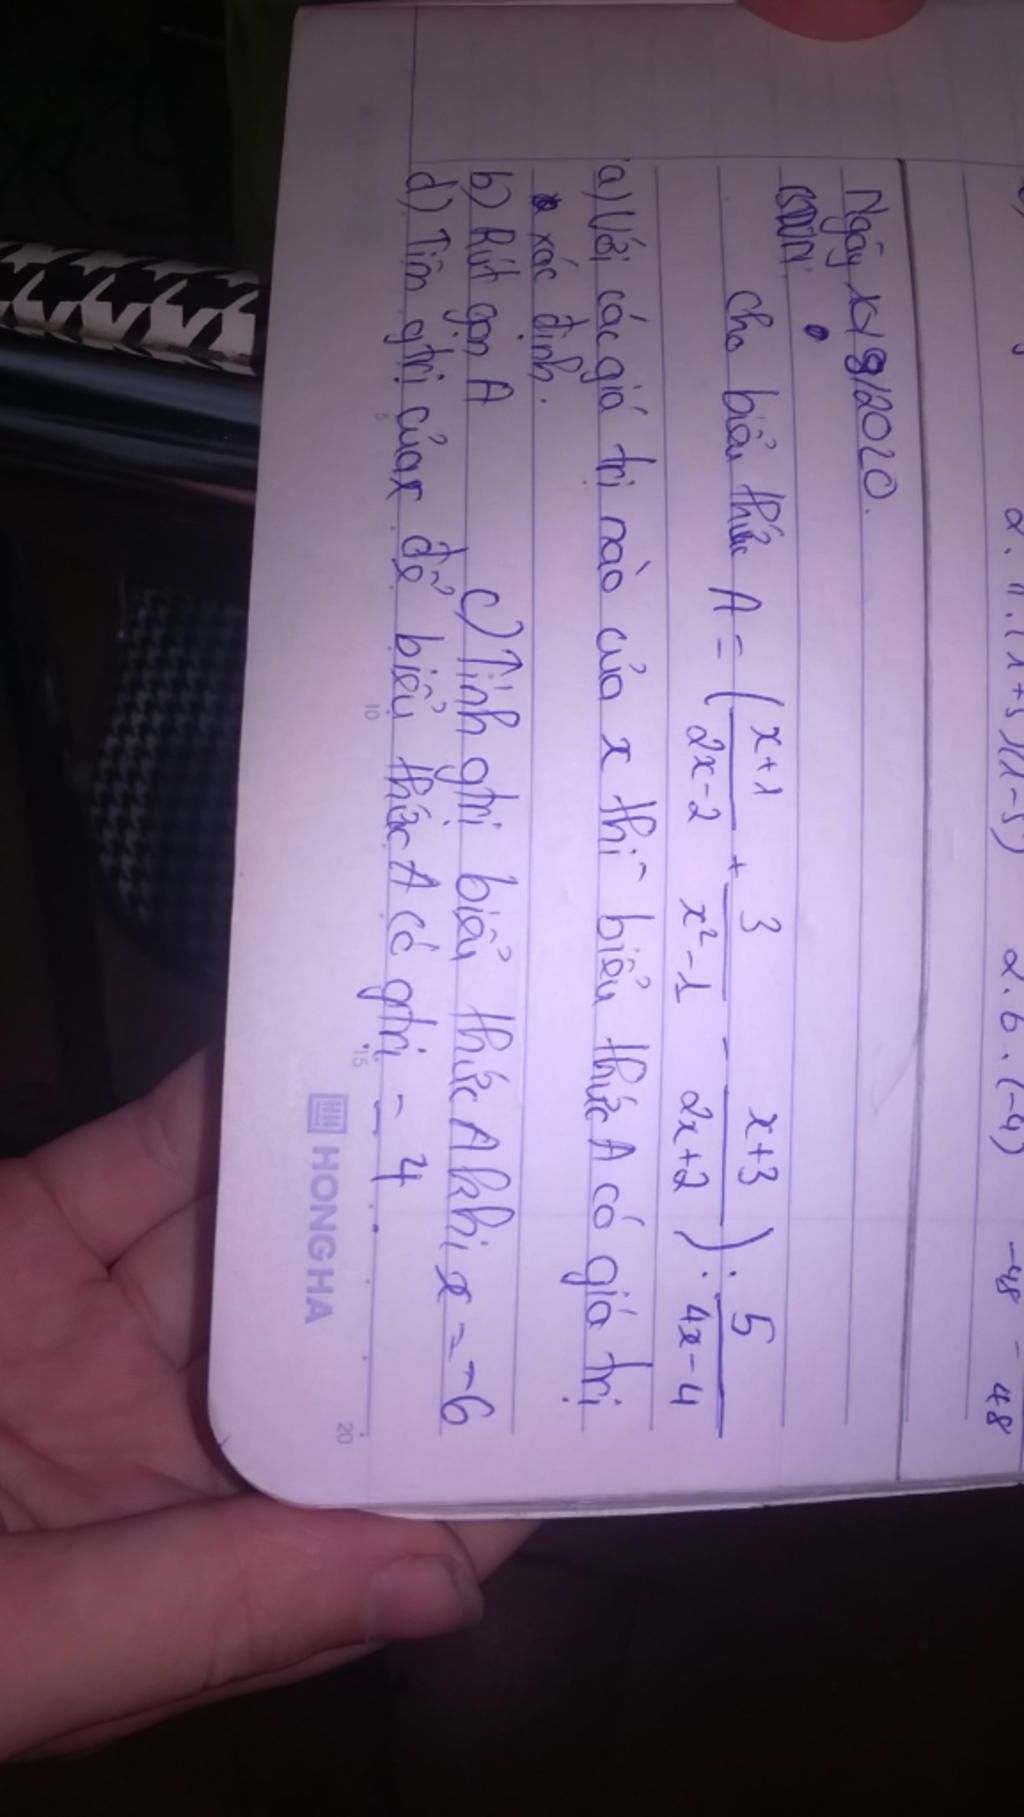 2. 11. (x+5)(x-5) 2.6.(-4) -48 - 48
Ngày 8/2020.
BTVN:
Cho biểu thức A = (x+1/2x-2 + 3/x²-1 - x+3/2x+2) : 5/4x-4
a) Với các giá trị nào của x thì biểu thức A có giá trị
xác định.
b) Rút gọn A c) Tính gtrị biểu thức A khi x = -6
d) Tìm gtrị của x để biểu thức A có gtrị = 4.
5 10 15 20
HONG HA